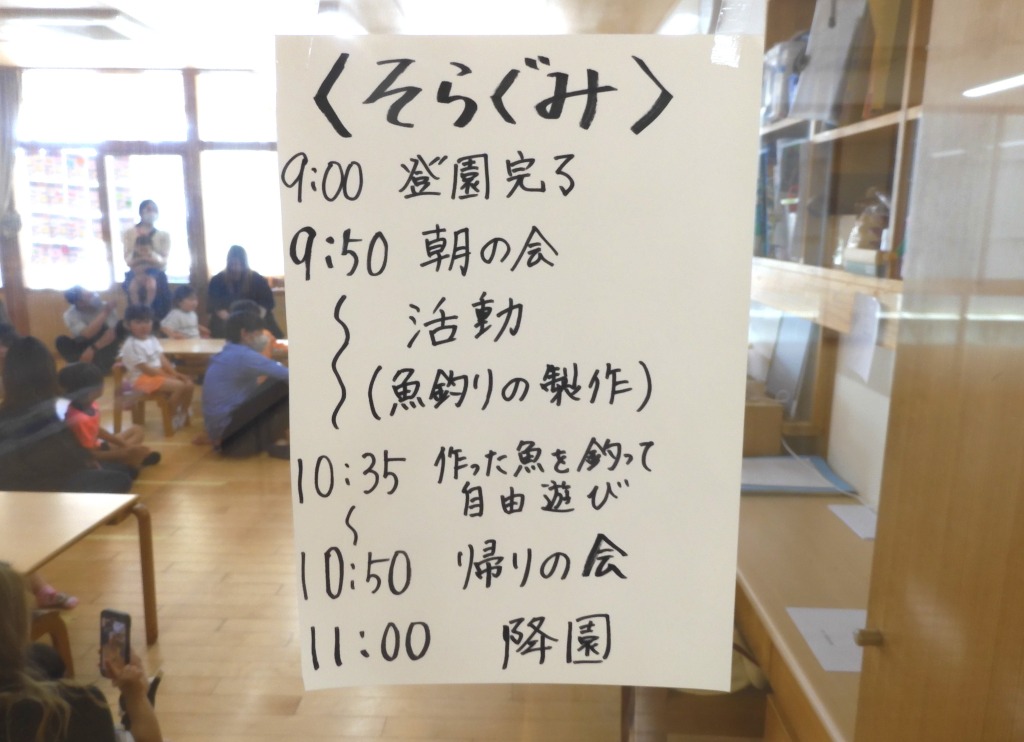 〈そらぐみ〉
9:00 登園完了
9:50 朝の会
〜 活動
(魚釣りの製作)
10:35 作った魚を釣って
自由遊び
〜
10:50 帰りの会
11:00 降園